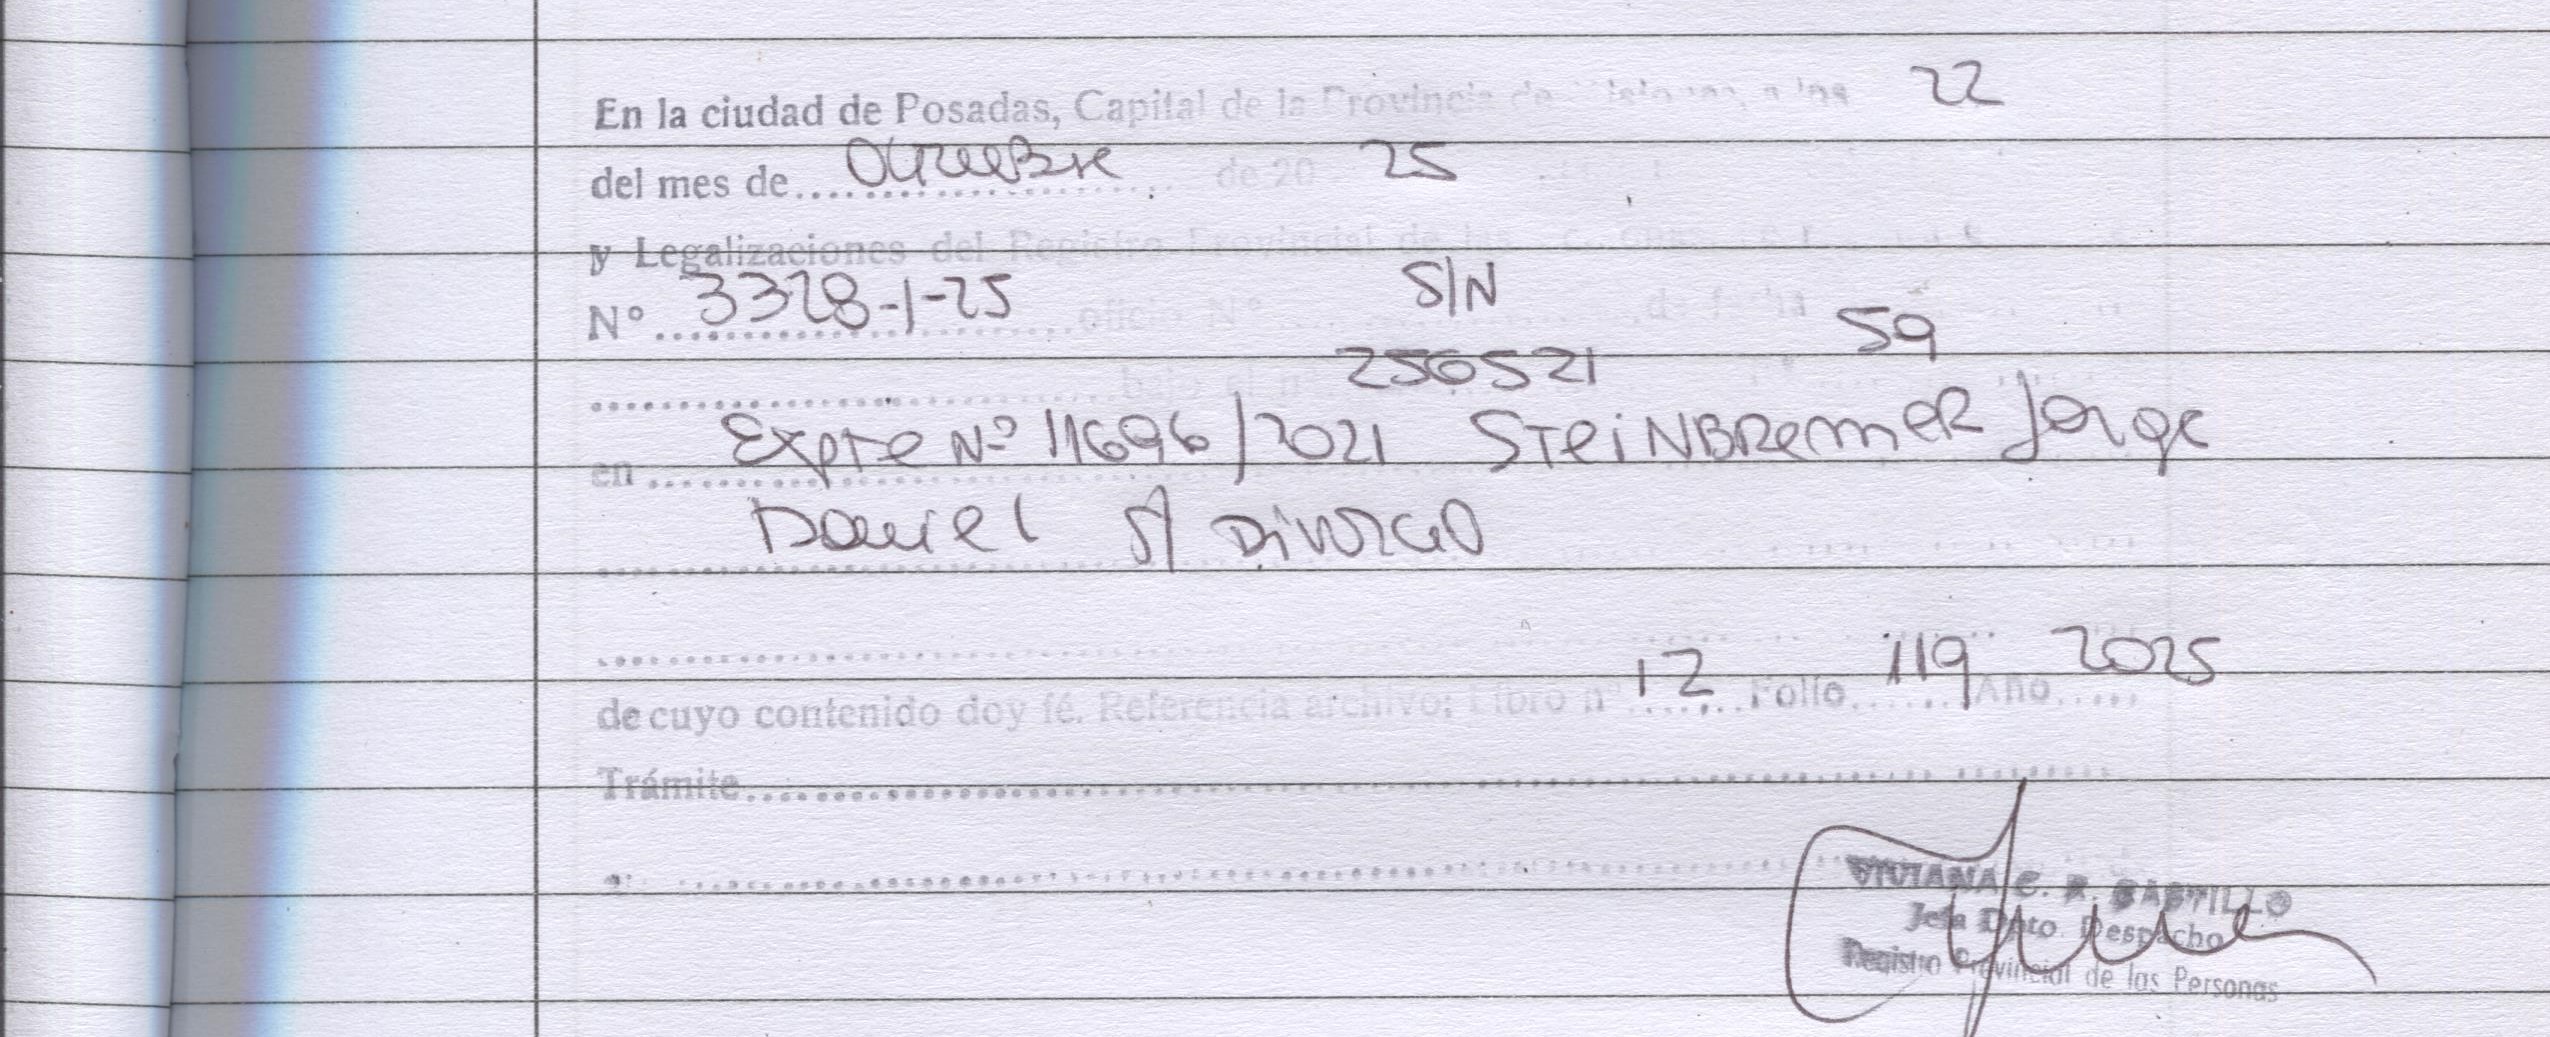 En la ciudad de Posadas, Capital de la Provincia de Misiones, a los 22
del mes de Octubre de 20 25
y Legalizaciones del Registro Provincial de las
Nº 3328-1-25 oficio Nº S/N de fecha 59
bajo el nº 256521
en Expte Nº 11696/2021 STeiNBRemmER Jorge
Daniel S/ Divorcio
de cuyo contenido doy fé. Referencia archivo: Libro nº 12 Folio 119 Año 2025
Trámite
VIVIANA C. R. CASTILLO
Jefa Dpto. Despacho
Registro Provincial de las Personas